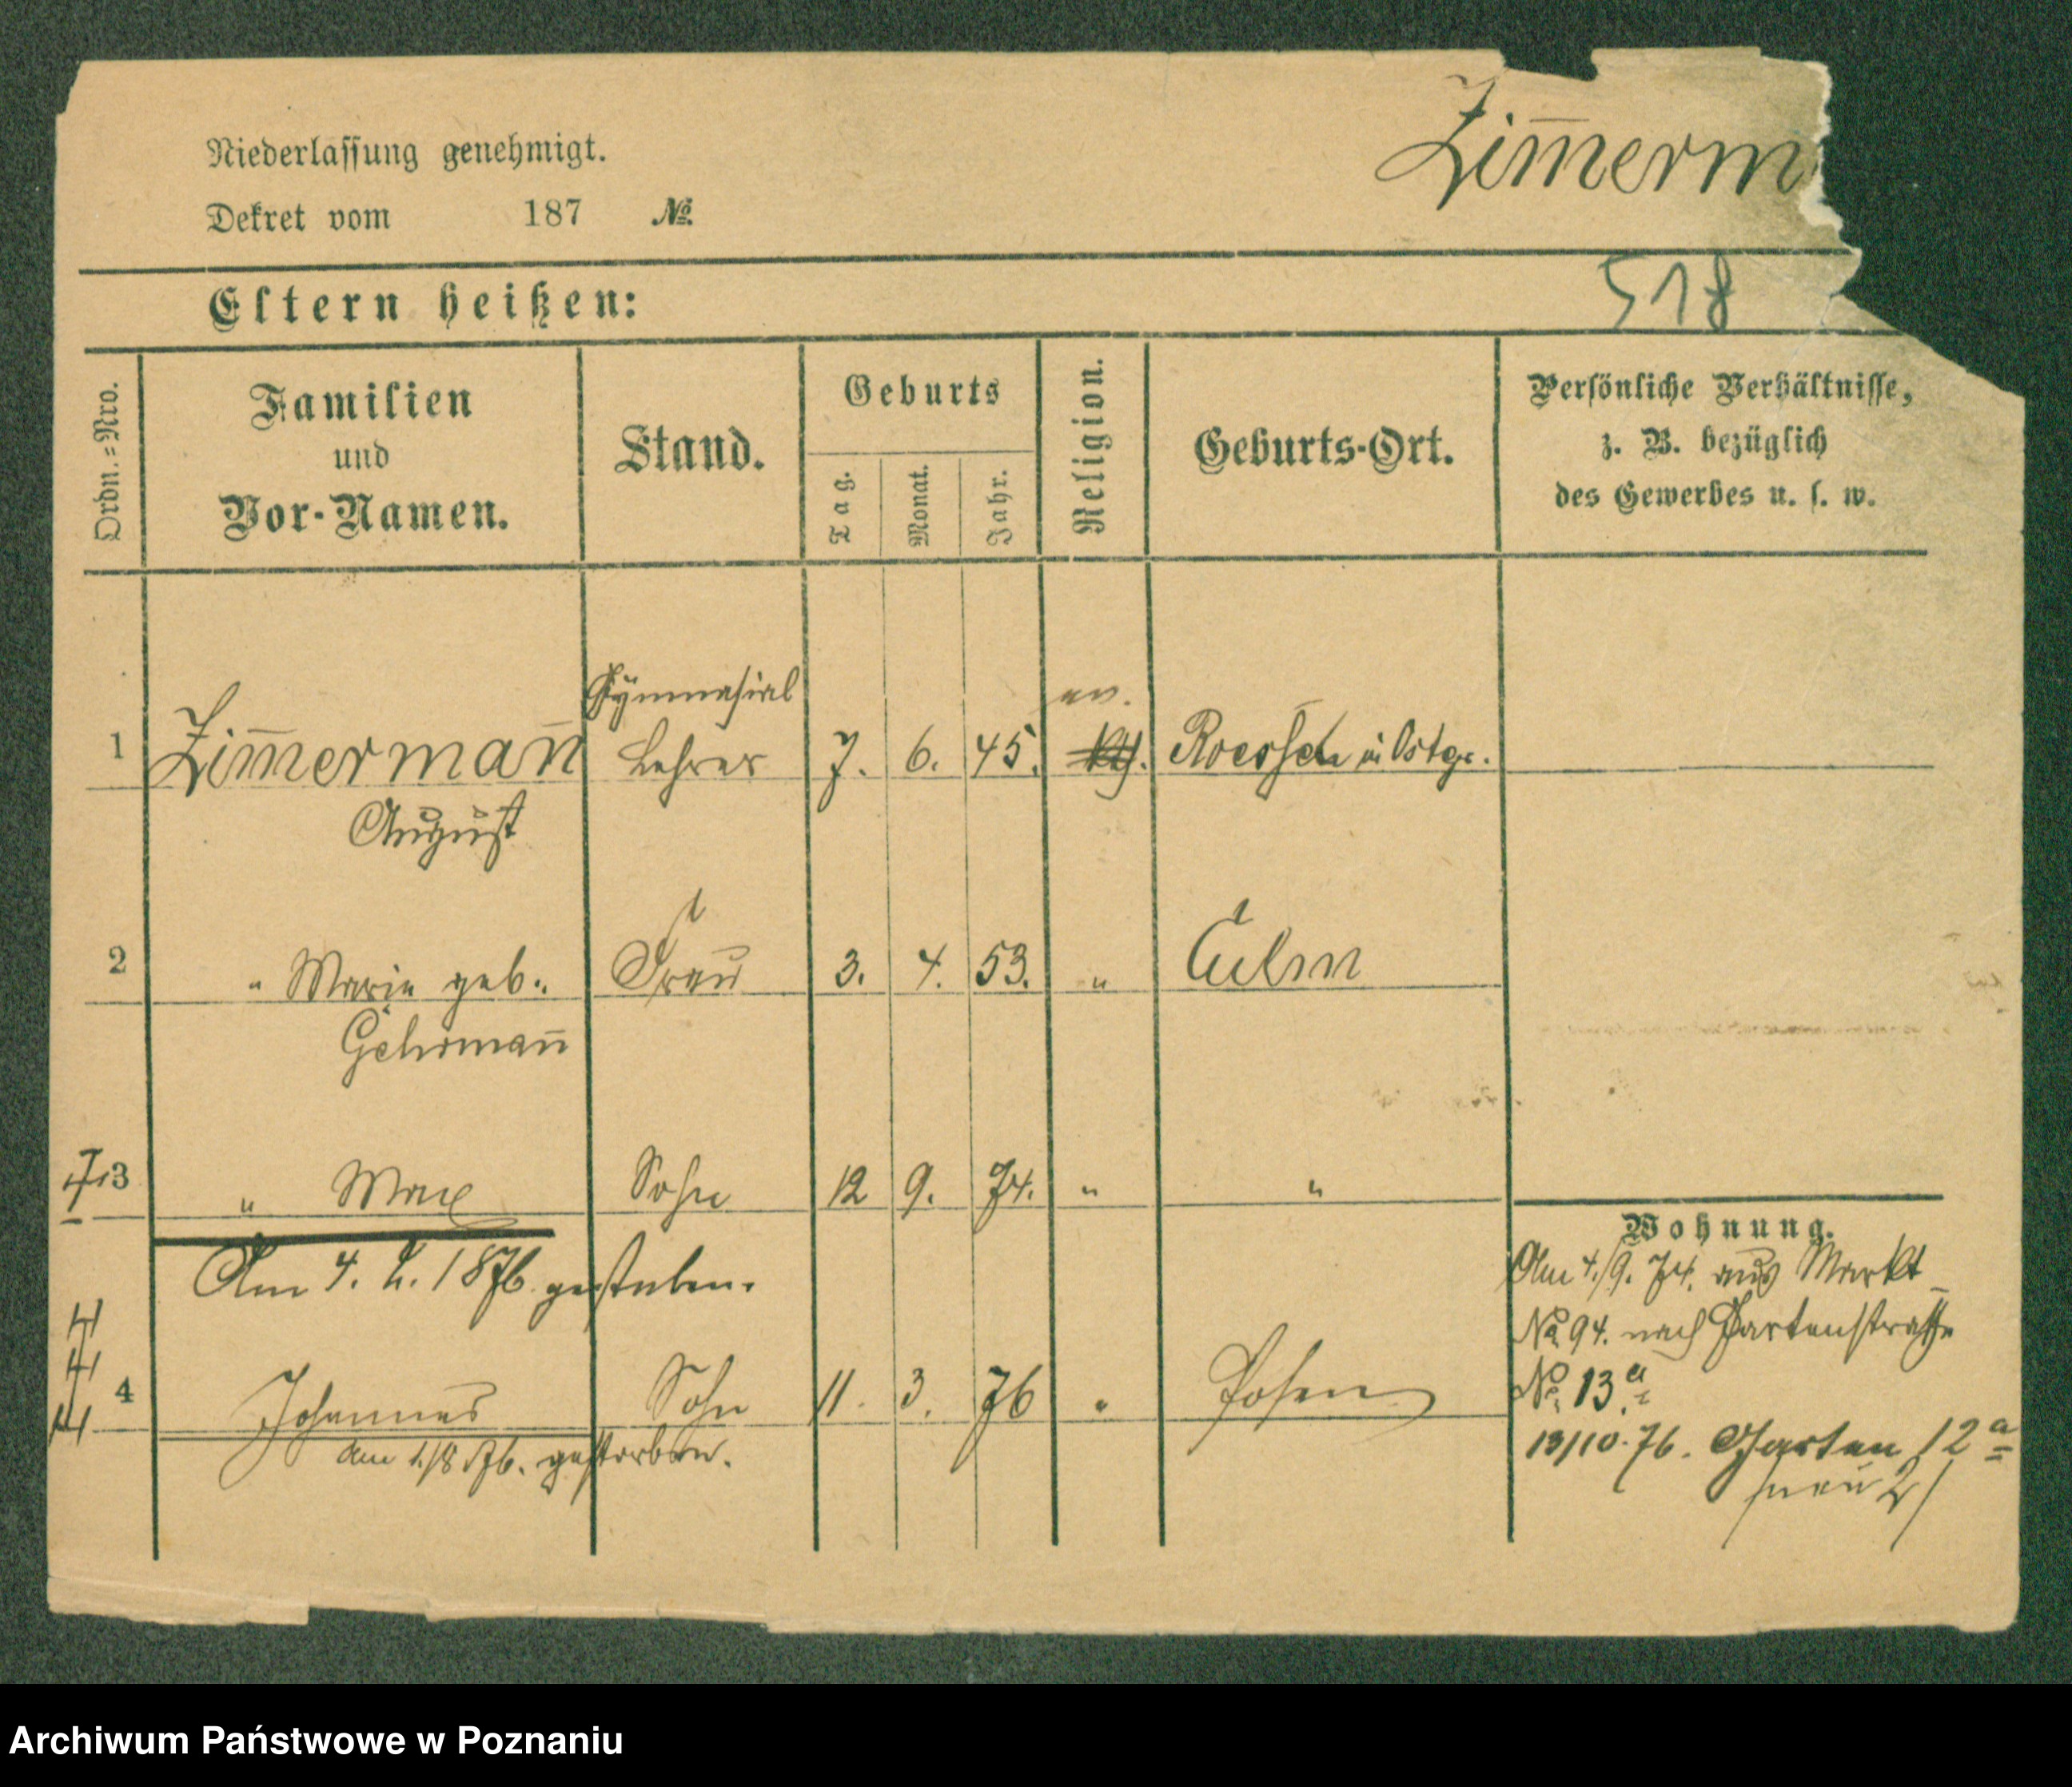 Zim̅erm
Niederlassung genehmigt.
Dekret vom 187 №
518
Eltern heißen:
Ordn.-Nro.
Familien
und
Vor-Namen.
Stand.
Geburts
Tag.
Monat.
Jahr.
Religion.
Geburts-Ort.
Persönliche Verhältnisse,
z. B. bezüglich
des Gewerbes u. s. w.
Gymnasial ev.
1 Zim̅erman̅ Lehrer 7. 6. 45. in Ostpr.
August
2 " Marie geb. Frau 3. 4. 53. " Culm
Gehrman̅
3 " Max Sohn 12 9. 74. " "
Am 4. 2. 1876 gestorben.
4 Johannes Sohn 11. 3. 76 " Posen
am 1/8 76. gestorben.
Wohnung.
Am 4./9. 74. aus Markt
No 94. nach Gartenstraße
No. 13 a
13/10. 76. Garten 12 a
/neu 2/
Archiwum Państwowe w Poznaniu